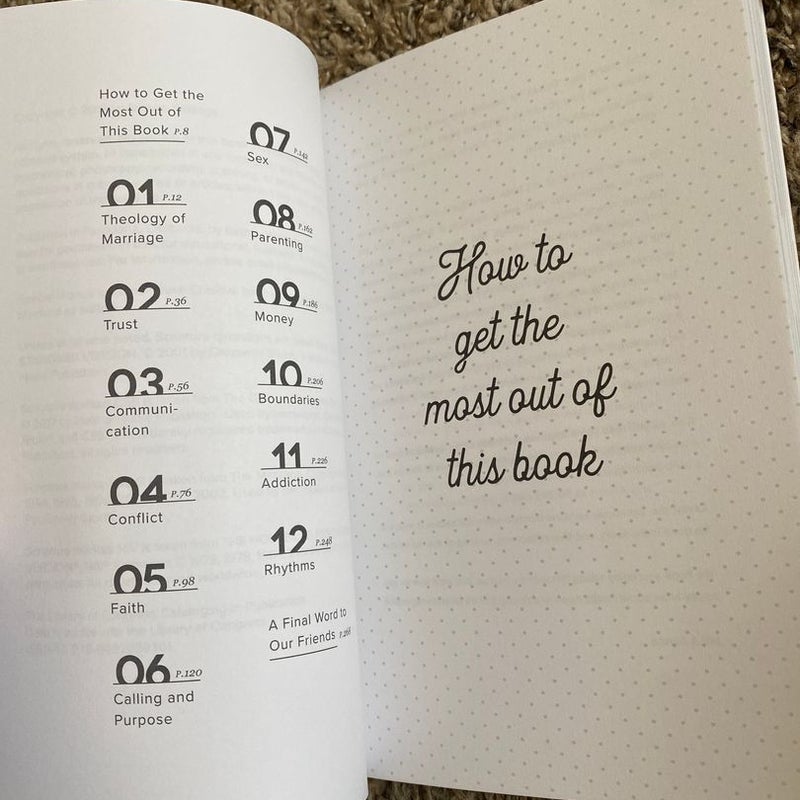 How to Get the
Most Out of
This Book P.8
01 P.12
Theology of
Marriage
02 P.36
Trust
03 P.56
Communi-
cation
04 P.76
Conflict
05 P.98
Faith
06 P.120
Calling and
Purpose
07 P.142
Sex
08 P.162
Parenting
09 P.186
Money
10 P.206
Boundaries
11 P.226
Addiction
12 P.248
Rhythms
A Final Word to
Our Friends P.268
How to
get the
most out of
this book